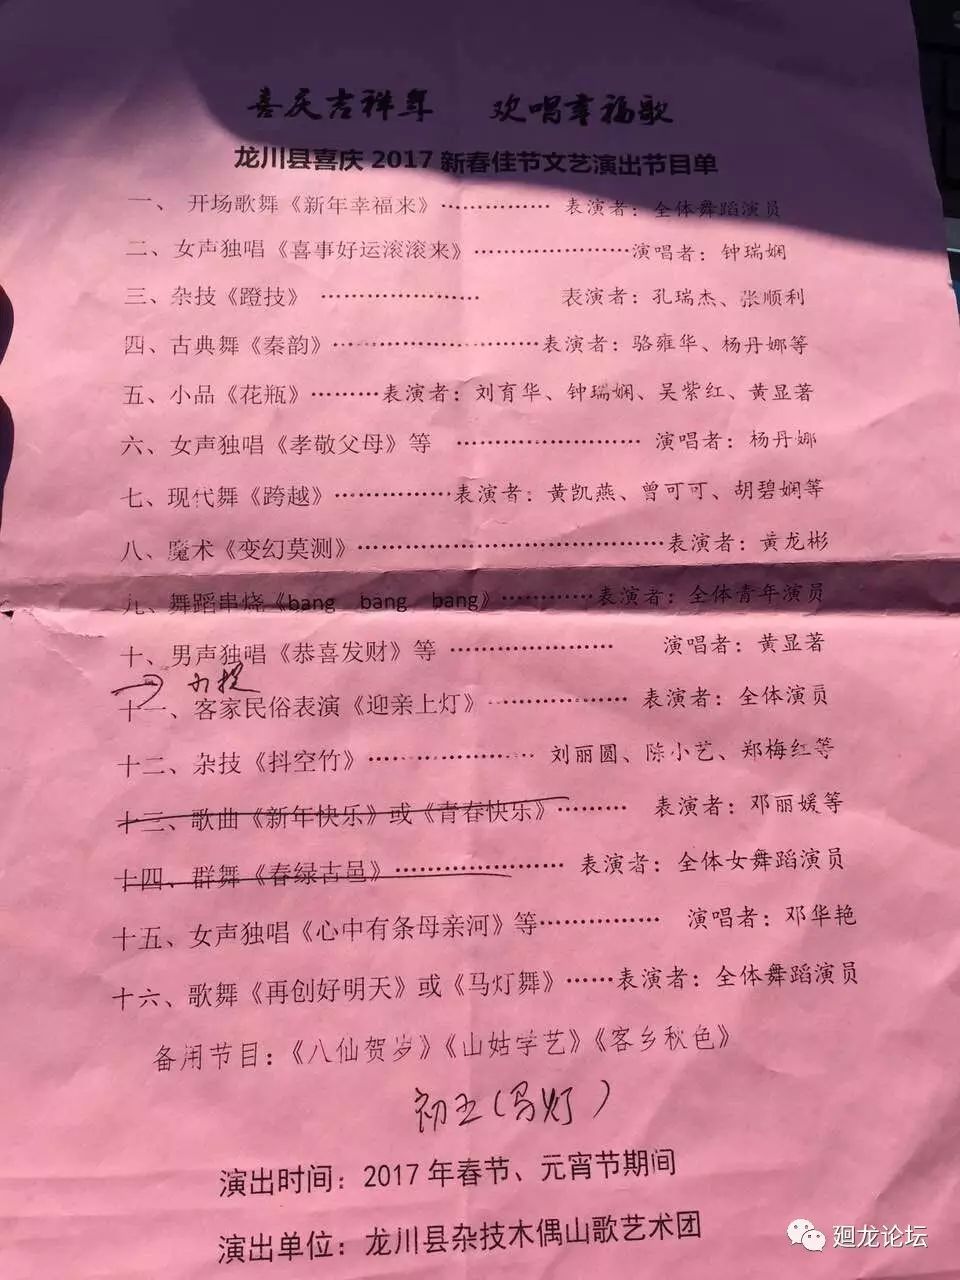 喜庆吉祥年 欢唱幸福歌
龙川县喜庆2017新春佳节文艺演出节目单
一、 开场歌舞《新年幸福来》…………… 表演者：全体舞蹈演员
二、女声独唱《喜事好运滚滚来》…………………演唱者：钟瑞娴
三、杂技《蹬技》 ………………… 表演者：孔瑞杰、张顺利
四、古典舞《秦韵》………………………表演者：骆雍华、杨丹娜等
五、小品《花瓶》………表演者：刘育华、钟瑞娴、吴紫红、黄显著
六、女声独唱《孝敬父母》等 …………………… 演唱者：杨丹娜
七、现代舞《跨越》……………表演者：黄凯燕、曾可可、胡碧娴等
八、魔术《变幻莫测》…………………………………表演者：黄龙彬
九、舞蹈串烧《bang bang bang》……………表演者：全体青年演员
十、男声独唱《恭喜发财》等 ………………… 演唱者：黄显著
十一、客家民俗表演《迎亲上灯》……………… 表演者：全体演员
十二、杂技《抖空竹》………………… 刘丽圆、陈小艺、郑梅红等
十三、歌曲《新年快乐》或《青春快乐》……… 表演者：邓丽媛等
十四、群舞《春绿古邑》…………………… 表演者：全体女舞蹈演员
十五、女声独唱《心中有条母亲河》等…………… 演唱者：邓华艳
十六、歌舞《再创好明天》或《马灯舞》……表演者：全体舞蹈演员
备用节目：《八仙贺岁》《山姑学艺》《客乡秋色》
初五（马灯）
演出时间：2017年春节、元宵节期间
演出单位：龙川县杂技木偶山歌艺术团
廻龙论坛